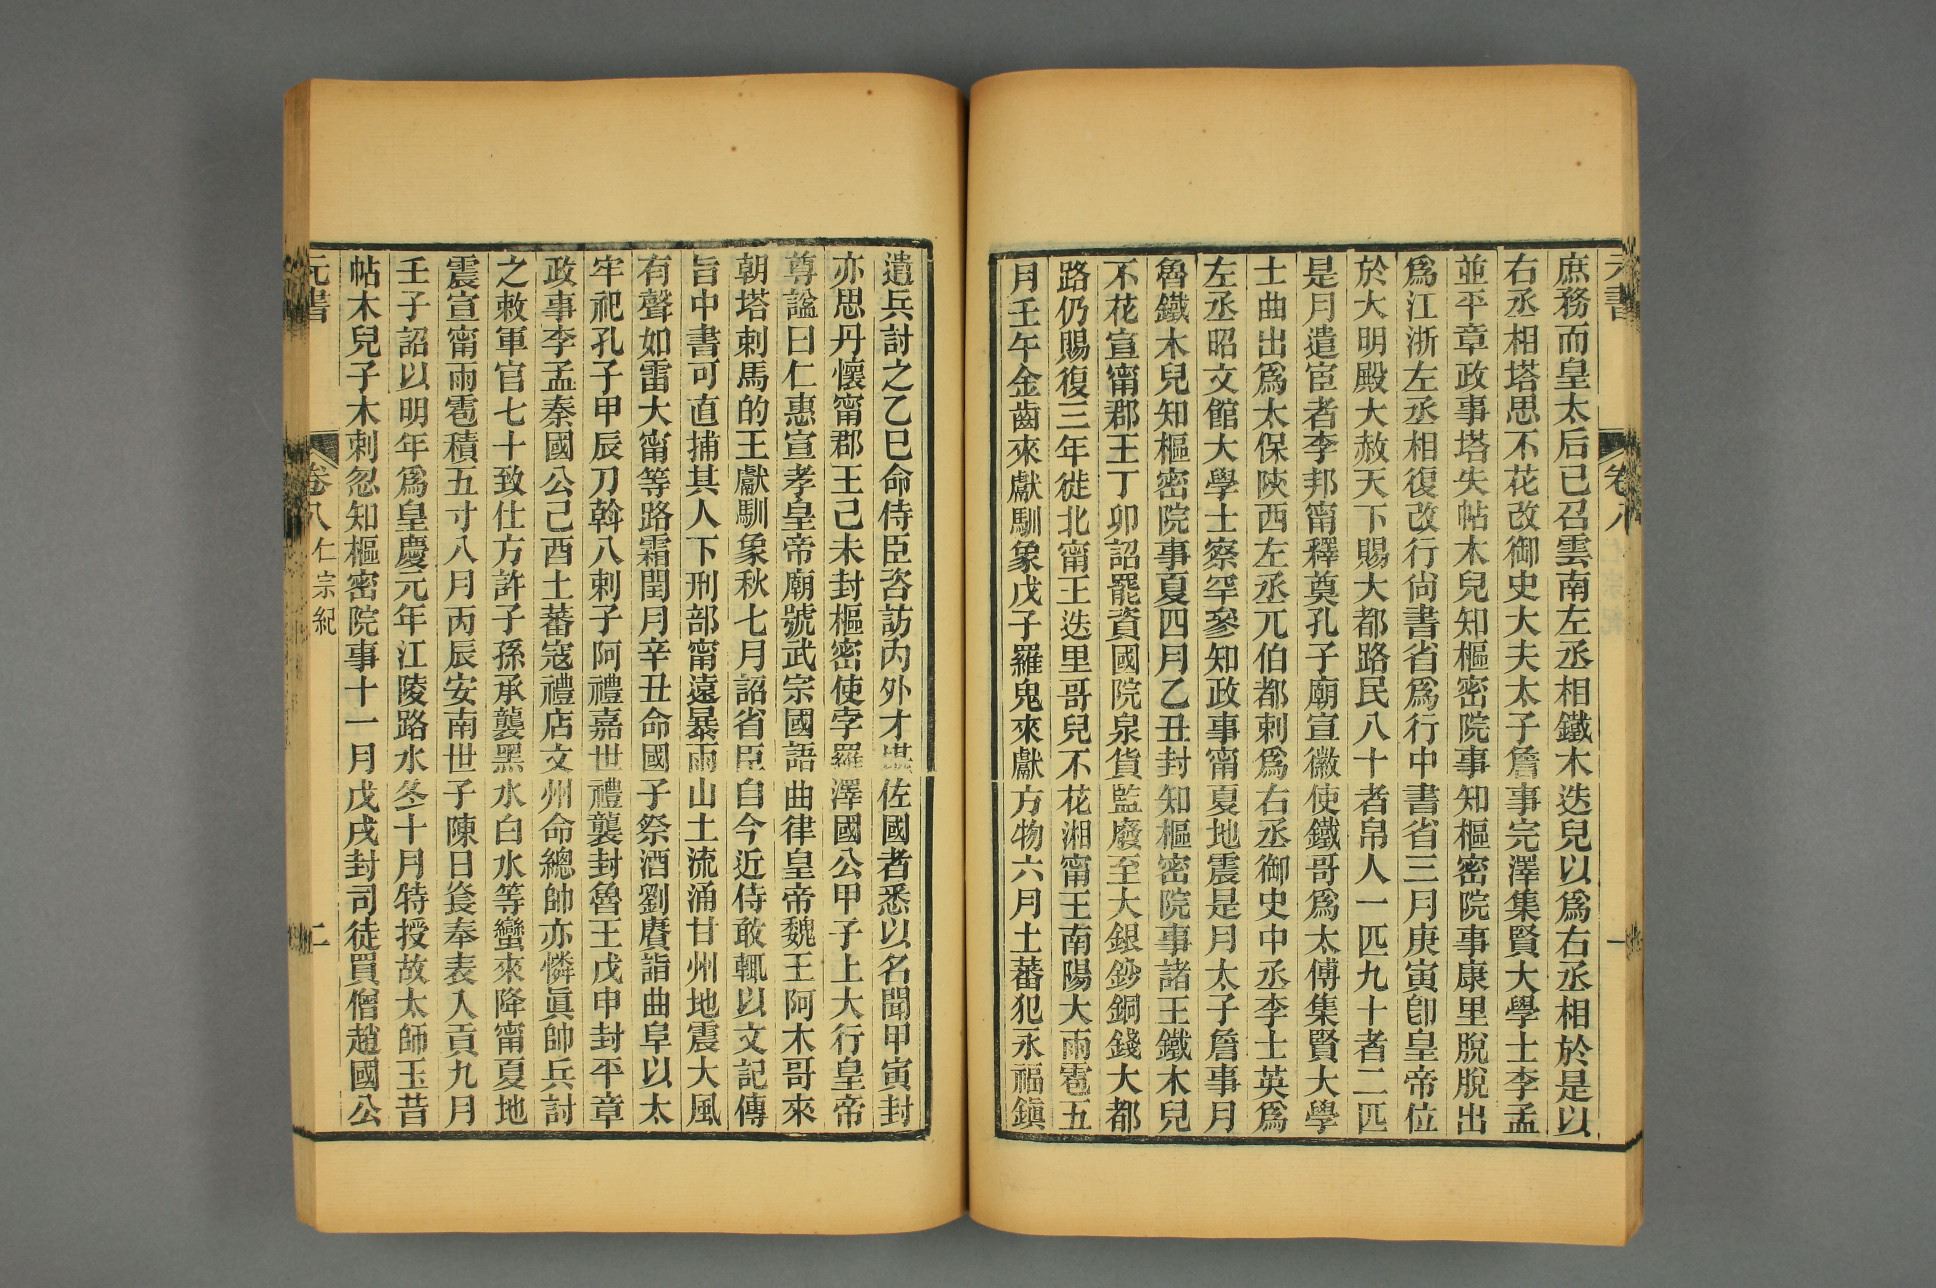 元書 卷八 一
庶務而皇太后已召雲南左丞相鐵木迭兒以爲右丞相於是以
右丞相塔思不花改御史大夫太子詹事完澤集賢大學士李孟
並平章政事塔失帖木兒知樞密院事知樞密院事康里脫脫出
爲江浙左丞相復改行尙書省爲行中書省三月庚寅卽皇帝位
於大明殿大赦天下賜大都路民八十者帛人一匹九十者二匹
是月遣宦者李邦甯釋奠孔子廟宣徽使鐵哥爲太傅集賢大學
士曲出爲太保陝西左丞兀伯都剌爲右丞御史中丞李士英爲
左丞昭文館大學士察罕參知政事甯夏地震是月太子詹事月
魯鐵木兒知樞密院事夏四月乙丑封知樞密院事諸王鐵木兒
不花宣甯郡王丁卯詔罷資國院泉貨監廢至大銀鈔銅錢大都
路仍賜復三年徙北甯王迭里哥兒不花湘甯王南陽大雨雹五
月壬午金齒來獻馴象戊子羅鬼來獻方物六月土蕃犯永福鎭
遣兵討之乙巳命侍臣咨訪內外才堪佐國者悉以名聞甲寅封
亦思丹懷甯郡王己未封樞密使孛羅澤國公甲子上大行皇帝
尊諡曰仁惠宣孝皇帝廟號武宗國語曲律皇帝魏王阿木哥來
朝塔剌馬的王獻馴象秋七月詔省臣自今近侍敢輒以文記傳
旨中書可直捕其人下刑部甯遠暴雨山土流涌甘州地震大風
有聲如雷大甯等路霜閏月辛丑命國子祭酒劉賡詣曲阜以太
牢祀孔子甲辰刀斡八剌子阿禮嘉世禮襲封魯王戊申封平章
政事李孟秦國公己酉土蕃寇禮店文州命總帥亦憐眞帥兵討
之敕軍官七十致仕方許子孫承襲黑水白水等蠻來降甯夏地
震宣甯雨雹積五寸八月丙辰安南世子陳日㷃奉表入貢九月
壬子詔以明年爲皇慶元年江陵路水冬十月特授故太師玉昔
帖木兒子木剌忽知樞密院事十一月戊戌封司徒買僧趙國公
元書 卷八 仁宗紀 二